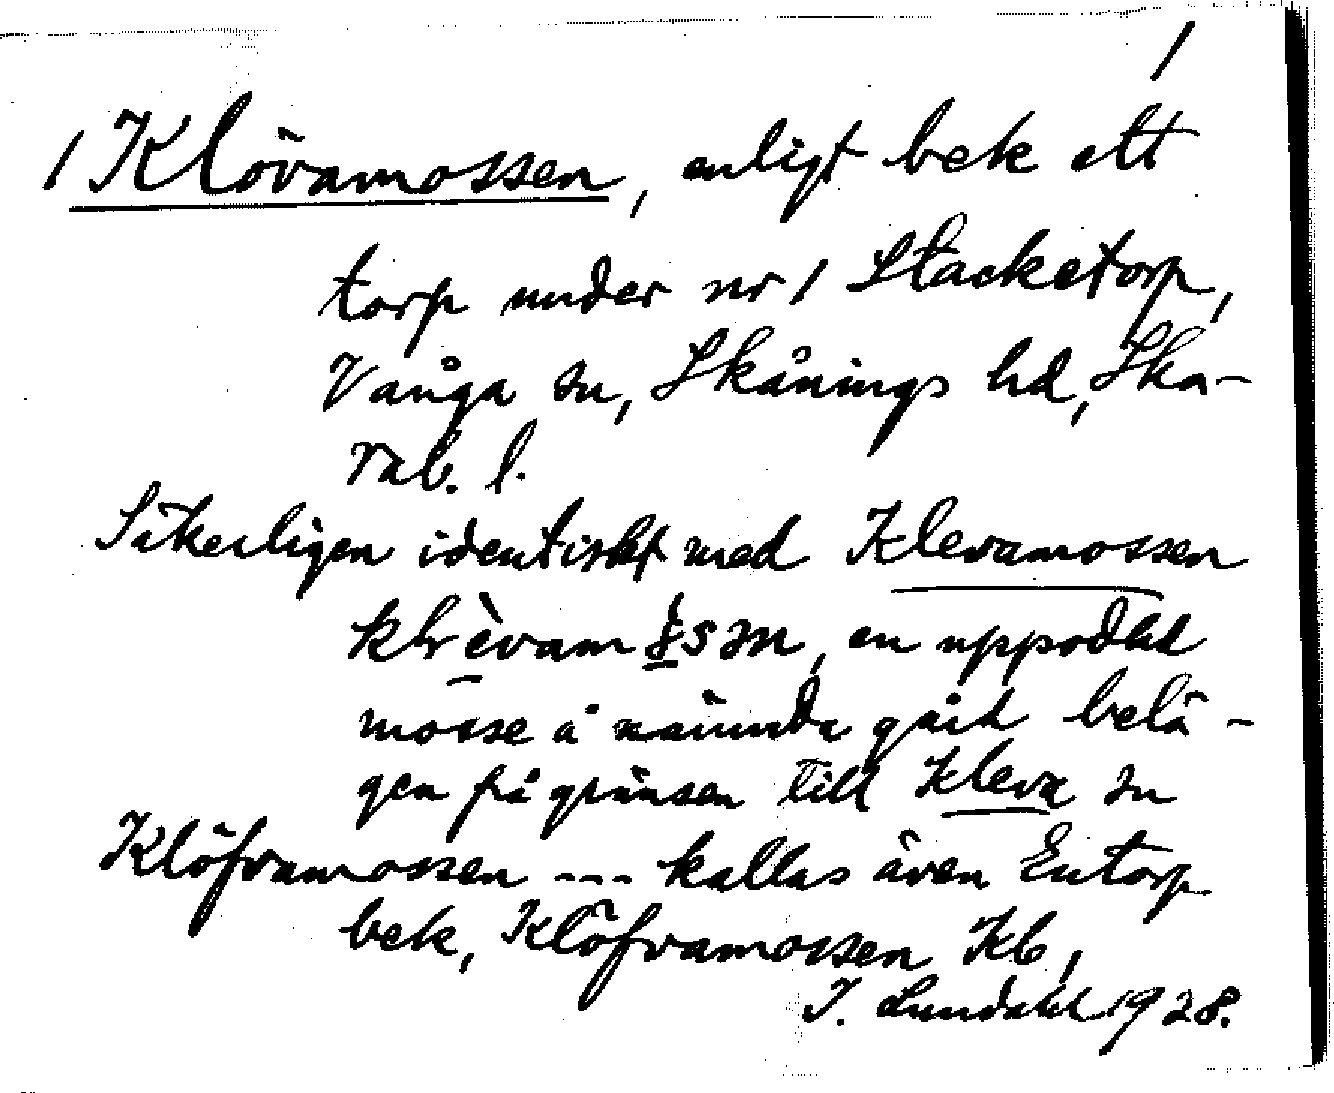 /
/ Klövamossen, enligt bek ett
torp under nr 1 Stacketorp,
Vånga sn, Skånings hd, Ska-
rab. l.
Säkerligen identiskt med Klevamossen
en uppodlad
mosse å nämnda gård belä-
gen på gränsen till Kleva sn
Klöfvamossen --- kallas även Entorp
bek, Klöfvamossen Kb,
I. Lundahl 1928.